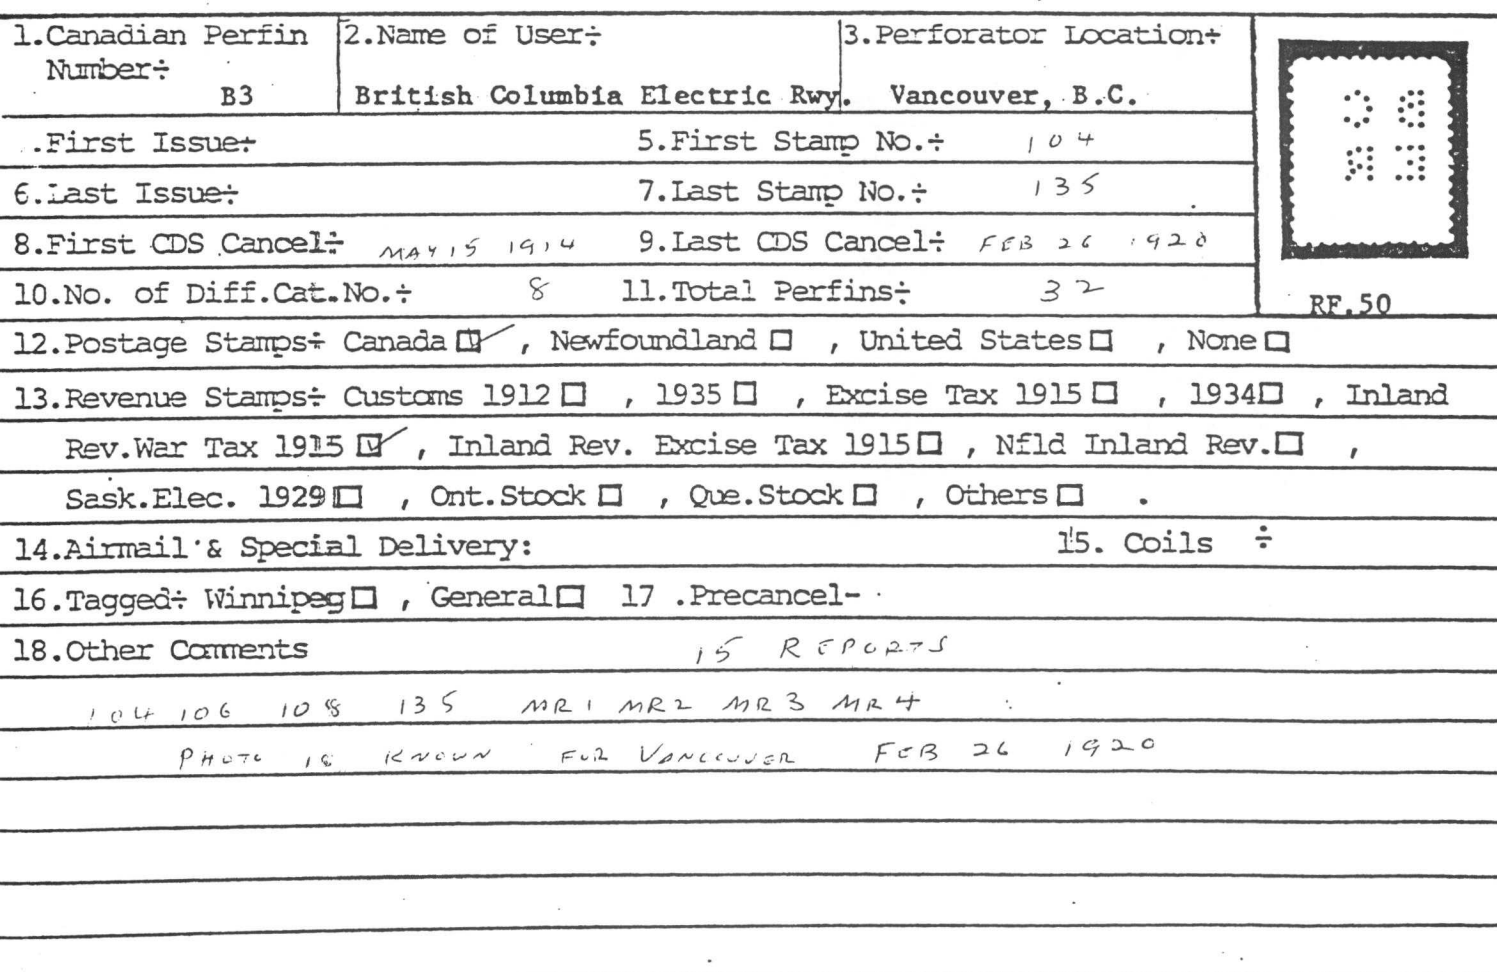 1.Canadian Perfin Number÷ B3
2.Name of User÷ British Columbia Electric Rwy.
3.Perforator Location÷ Vancouver, B.C.
.First Issue÷ 5.First Stamp No.÷ 104
6.Last Issue÷ 7.Last Stamp No.÷ 135
8.First CDS Cancel÷ MAY 15 1914 9.Last CDS Cancel÷ FEB 26 1920
10.No. of Diff.Cat.No.÷ 8 11.Total Perfins÷ 32
BC
ER
RF.50
12.Postage Stamps÷ Canada ☑, Newfoundland □, United States □, None □
13.Revenue Stamps÷ Customs 1912 □, 1935 □, Excise Tax 1915 □, 1934 □, Inland
Rev.War Tax 1915 ☑, Inland Rev. Excise Tax 1915 □, Nfld Inland Rev. □,
Sask.Elec. 1929 □, Ont.Stock □, Que.Stock □, Others □.
14.Airmail & Special Delivery: 15. Coils ÷
16.Tagged÷ Winnipeg □, General □ 17 .Precancel-
18.Other Comments 15 REPORTS
104 106 108 135 MR1 MR2 MR3 MR4
PHOTO IS KNOWN FOR VANCOUVER FEB 26 1920